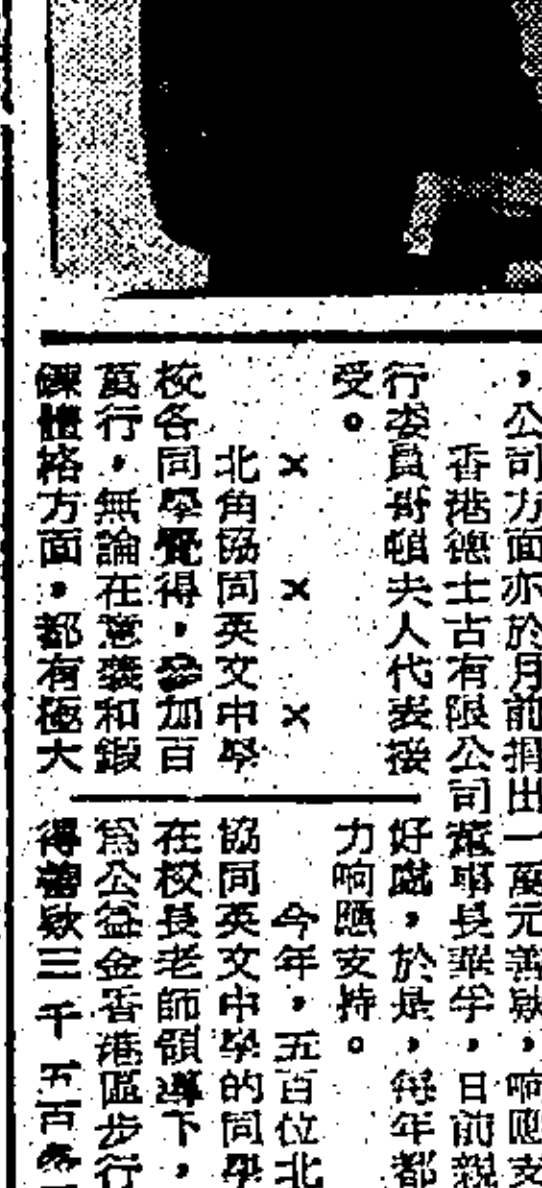 ，公司方面亦於月前捐出一萬元善款，响應支
香港德士古有限公司董事長華孚，日前親
行委員哥頓夫人代表接
受。
× × ×
北角協同英文中學
校各同學覺得，參加百
萬行，無論在意義和鍛
鍊體格方面，都有極大
好處，於是，每年都
力响應支持。
今年，五百位北
協同英文中學的同學
在校長老師領導下，
爲公益金香港區步行
得善款三千五百多